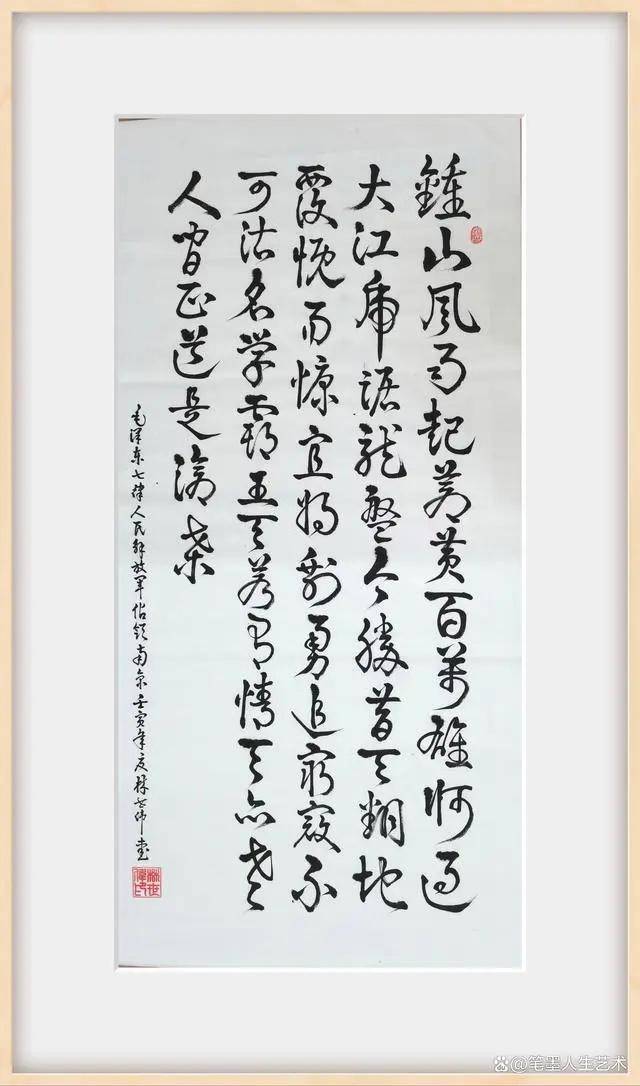 鍾山風雨起蒼黃百萬雄師過
大江虎踞龍盤今勝昔天翻地
覆慨而慷宜將剩勇追窮寇不
可沽名学霸王天若有情天亦老
人間正道是滄桑
毛澤東七律人民解放軍佔領南京壬寅年夏林世偉書
林世偉印
@笔墨人生艺术